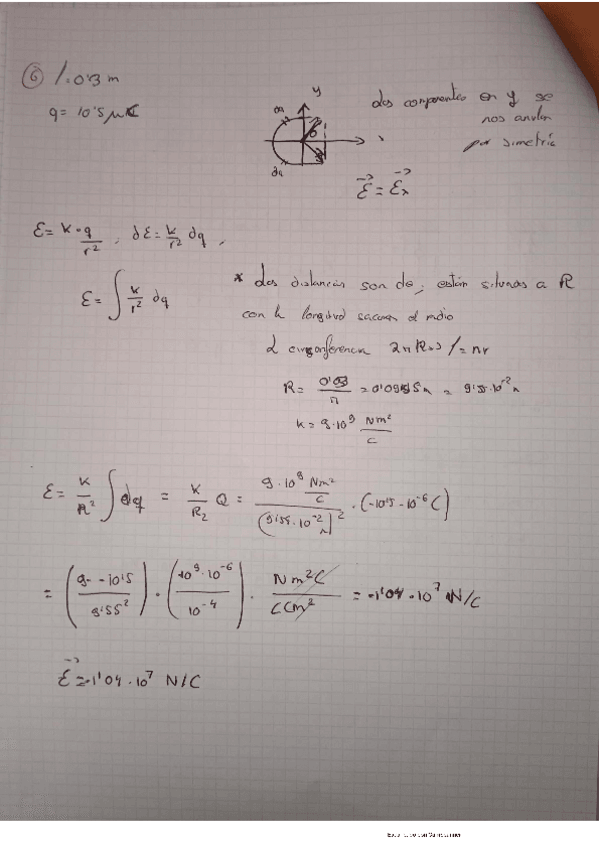 ⑥ l=0'3 m
q= 10'5 μC
y
dq
θ
x
dq
Las componentes en y se
nos anulan
por simetría
→ℰ = →ℰx
ℰ= k·q/r² , dℰ= k/r² dq ,
ℰ= ∫ k/r² dq
* Las distancias son de están situadas a R
con la longitud sacamos el radio
circunferencia 2πR l=πr
R= = 9'55·10⁻² m
k= 9·10⁹ Nm²/C
ℰ= k/R² ∫ dq = k/R₂ Q = 9·10⁹ Nm²/C / (9'55·10⁻² m)² · (-10'5·10⁻⁶ C)
= (9·-10'5 / 9'55²) · (10⁹·10⁻⁶ / 10⁻⁴) · Nm²C / CCm² = -1'04·10⁷ N/C
→ℰ=-1'04·10⁷ N/C